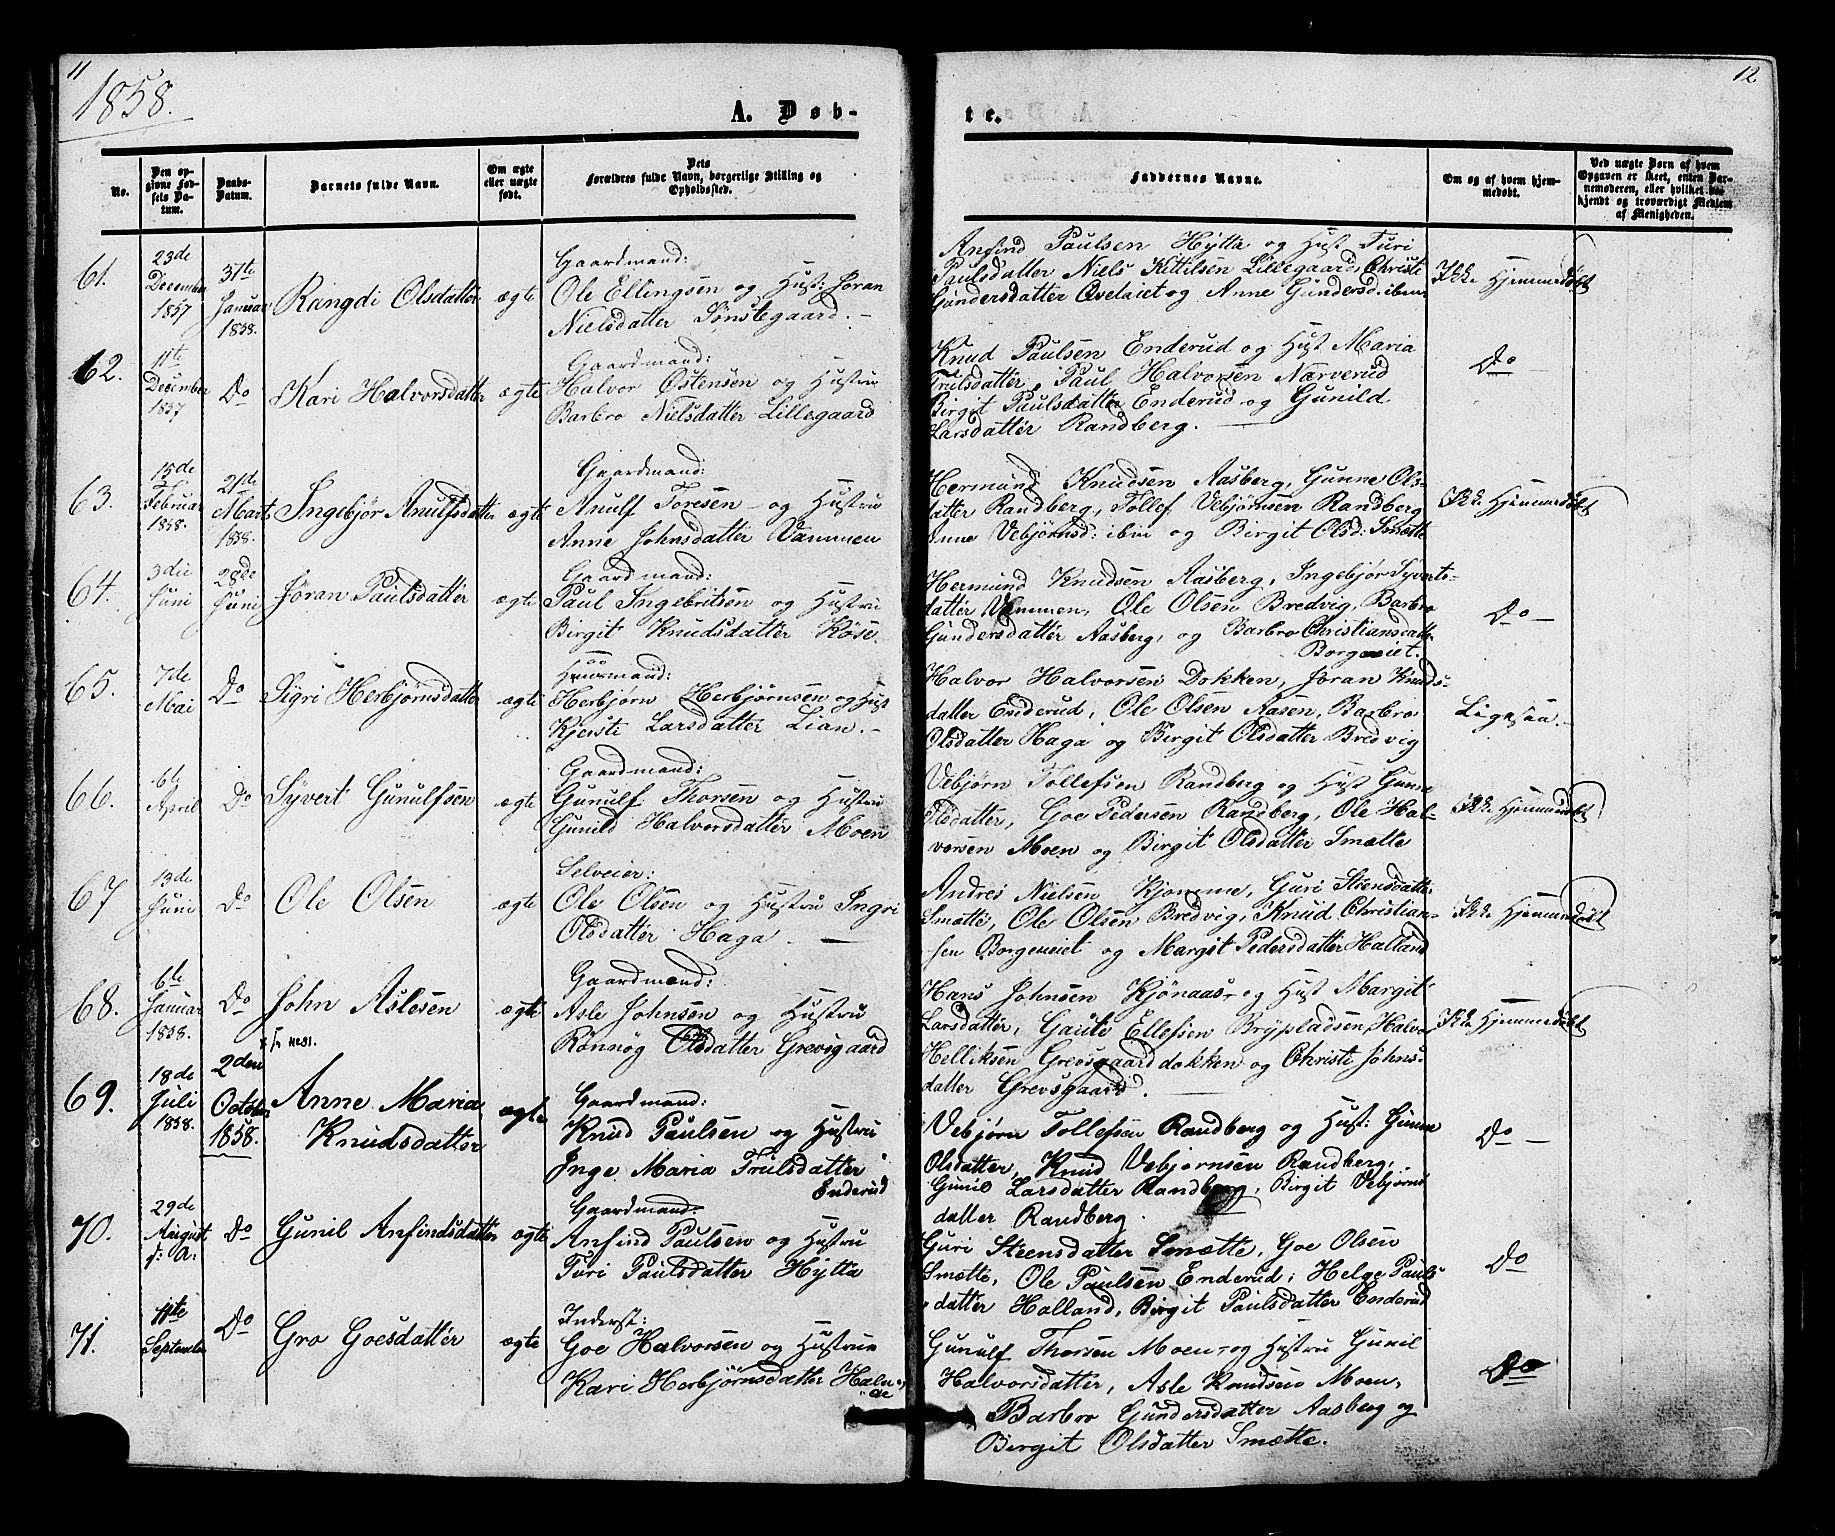 11
1858.
A. Døb-
No.
Den op-
givne Fød-
sels Da-
tum.
Daabs-
Datum.
Barnets fulde Navn.
Om ægte
eller uægte
født.
Dets
Forældres fulde Navn, borgerlige Stilling og
Opholdssted.
61.
23de
December
1857
31te
Januar
1858.
Rangdi Olsdatter
ægte
Gaardmand:
Ole Ellingsen og Hust: Jøran
Nielsdatter Sønstegaard.-
62.
11te
December
1857
Do
Kari Halvorsdatter
ægte
Gaardmand:
Halvor Østensen og Hustru
Barbro Nielsdatter Lillegaard
63.
15de
Februar
1858.
21de
Mart
1858.
Ingebjør Anulfsdatter
ægte
Gaardmand:
Anulf Toresen og Hustru
Anne Johnsdatter Vammen
64.
3die
Juni
28de
Juni
Jøran Paulsdatter
ægte
Gaardmand:
Paul Ingebritsen og Hustru
Birgit Knudsdatter Køse.
65.
7de
Mai
Do
Sigri Herbjørnsdatter
ægte
Huusmand:
Herbjørn Herbjørnsen og Hust
Kjersti Larsdatter Lian.-
66.
6te
April
Do
Syvert Gunulfsen
ægte
Gaardmand:
Gunulf Thorsen og Hustru
Gunild Halvorsdatter Moen
67
13de
Juni
Do
Ole Olsen
ægte
Selveier:
Ole Olsen og Hustru Ingri
Olsdatter Haga. —
68.
6te
Januar
1858.
Do
John Aslesen
ægte
Gaardmand:
Asle Johnsen og Hustru
Rønnog Olsdatter Grevsgaard
69.
18de
Juli
1858.
2den
October
1858.
Anne Maria
Knudsdatter
ægte
Gaardmand:
Knud Paulsen og Hustru
Inge Maria Trulsdatter
Enderud
70.
29de
August
f: A:
Do
Gunil Anfindsdatter
ægte
Gaardmand:
Anfind Paulsen og Hustru
Turi Paulsdatter Hytta
71.
11te
September
Do
Gro Goesdatter
ægte
Inderst:
Goe Halvorsen og Hustrue
Kari Herbjørnsdatter
12
te.
Faddernes Navne.
Om og af hvem hjem-
medøbt.
Ved uægte Børn af hvem
Opgaven er skeet, enten Bar-
nemoderen, eller hvilket be-
kjendt og troværdigt Medlem
af Menigheden.
Anfind Paulsen Hytta og Hust Turi
Paulsdatter Niels Kittilsen Lillegaard Christi
Gundersdatter og Anne Gundersd: ibm
Ikke Hjemmedøbt
Knud Paulsen Enderud og Hust Maria
Trulsdatter, Paul Halvorsen Nærverud
Birgit Paulsdatter Enderud og Gunild
Larsdatter Randberg. —
Do —
Hermund Knudsen Aasberg, Gunne Ols-
datter Randberg, Tollef Vebjørnsen Randberg
Anne Vebjørnsd: ibm og Birgit Olsd: Smætte
Ikke Hjemmedøbt
Hermund Knudsen Aasberg, Ingebjør Syverts-
datter Vammen, Ole Olsen Bredvig, Barbro
Gundersdatter Aasberg, og Barbro Christiansdatter
Borgeneiet.
Do —
Halvor Halvorsen Dokken, Joran Knuds-
datter Enderud, Ole Olsen Aasen, Barbro
Olsdatter Haga og Birgit Olsdatter Bredvig
Ligesaa.-
Vebjørn Tollefsen Randberg og Hust Gunne
Olsdatter, Goe Pedersen Randberg, Ole Hal-
vorsen Moen og Birgit Olsdatter Smætte
Ikke Hjemmedøbt
Andres Nielsen Kjomme, Guri Steensdatter
Smætte, Ole Olsen Bredvig, Knud Christian-
sen Borgeneiet og Margit Pedersdatter Halland
Ikke Hjemmedøbt
Hans Johnsen Kjønaas og Hust Margit
Larsdatter, Gaute Ellefsen Brypladsen, Halvor
Helliksen Grevsgaarddokken og Christi Johns-
datter Grevsgaard. —
Ikke Hjemmedøbt
Vebjørn Tollefsen Randberg og Hust: Gunne
Olsdatter, Knud Vebjørnsen Randberg,
Gunil Larsdatter Randberg, Birgit Vebjørns
datter Randberg.
Do —
Guri Steensdatter Smætte, Goe Olsen
Smætte, Ole Paulsen Enderud, Helge Pauls
datter Halland, Birgit Paulsdatter Enderud
Do
Gunulf Thorsen Moen og Hustru Gunil
Halvorsdatter, Asle Knudsen Moen,
Barbro Gundersdatter Aasberg og
Birgit Olsdatter Smætte.
Do